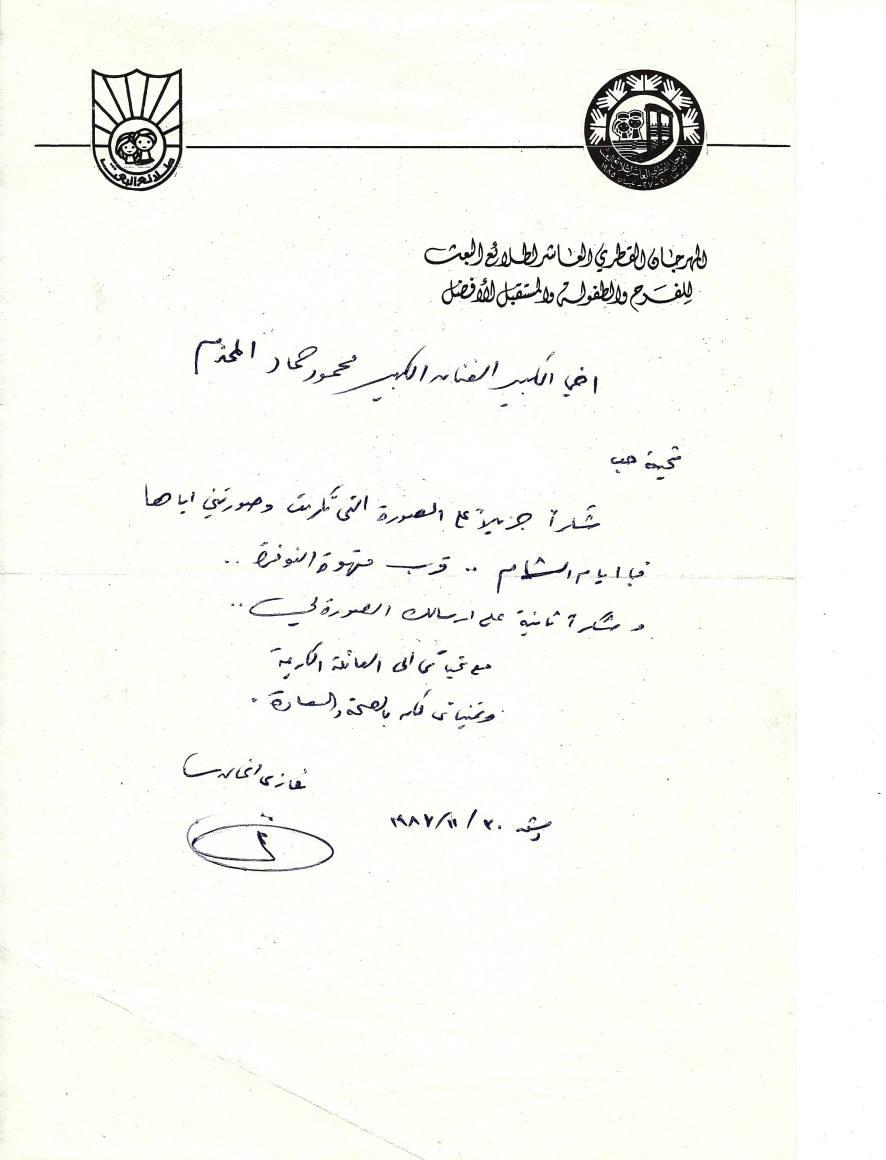 طلائع البعث
المهرجان القطري العاشر لطلائع البعث
٢٠-٢٧ نيسان ١٩٨٥
المهرجان القطري العاشر لطلائع البعث
للفرح والطفولة والمستقبل الأفضل
اخي الكبير الفنان الكبير محمود حماد المحترم
تحية حب
شكراً جزيلاً على الصورة التي تكرمت وصورتني اياها
ايام الشام .. قرب مقهوة النوفرة ..
وشكراً ثانية على ارسالك الصورة لي ..
مع تحياتي الى العائلة الكريمة
وتمنياتي لكم بالصحة والسعادة .
غازي الخالدي
دمشق ٣٠/١١/١٩٨٧